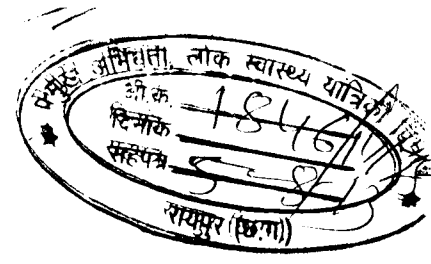 प्रमुख अभियंता, लोक स्वास्थ्य यांत्रिकी
जी.क. 1846
दिनांक
सहपत्र 5-8
रायपुर (छ.ग.)